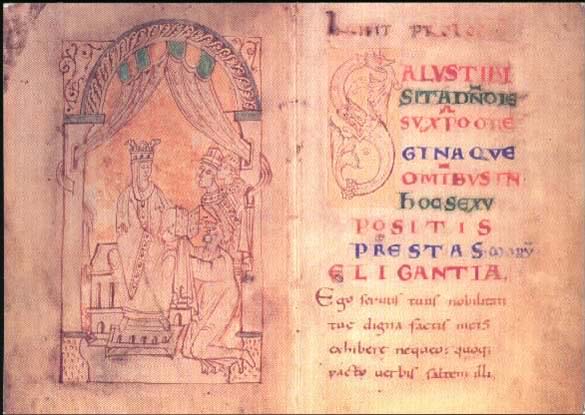 SALVS TIBI
SIT A DÑO IE
SV XP̄O O RE
GINA QVE
OM̄IBVS IN
HOC SEXV
POSITIS
PRESTAS MORV̄
ELIGANTIA.
Ego seruus tuus nobilitati
tuę digna factis meis
exhibere nequeo; quoq;
pacto uerbis saltem illi,